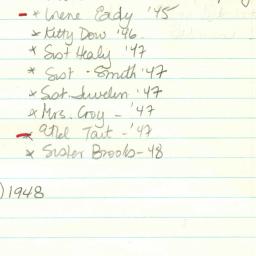 - * Irene Eady '45
* Kitty Dow '46
* Sist Healy '47
* Sist - Smith '47
* Sist. '47
* Mrs. Croy - '47
- * Ethel Tait - '47
* Sister Broobs - 48
) 1948